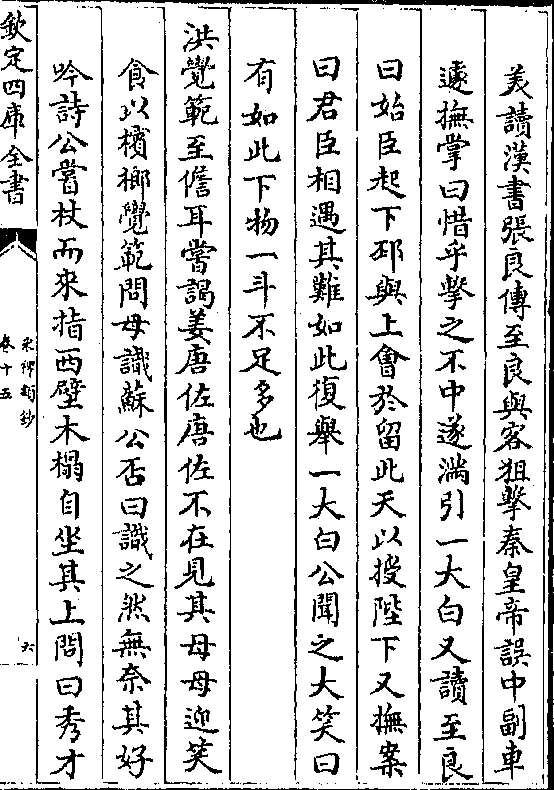 羙讀漢書張良傳至良與客狙擊秦皇帝誤中副車
遽撫掌曰惜乎擊之不中遂滿引一大白又讀至良
曰始臣起下邳與上會於留此天以授陛下又撫案
曰君臣相遇其難如此復舉一大白公聞之大笑曰
有如此下物一斗不足多也
洪覺範至儋耳嘗謁姜唐佐唐佐不在見其母母迎笑
食以檳榔覺範問母識蘇公否曰識之然無奈其好
吟詩公嘗杖而來指西壁木榻自坐其上問曰秀才
欽定四庫全書
宋稗類鈔
卷十五
六